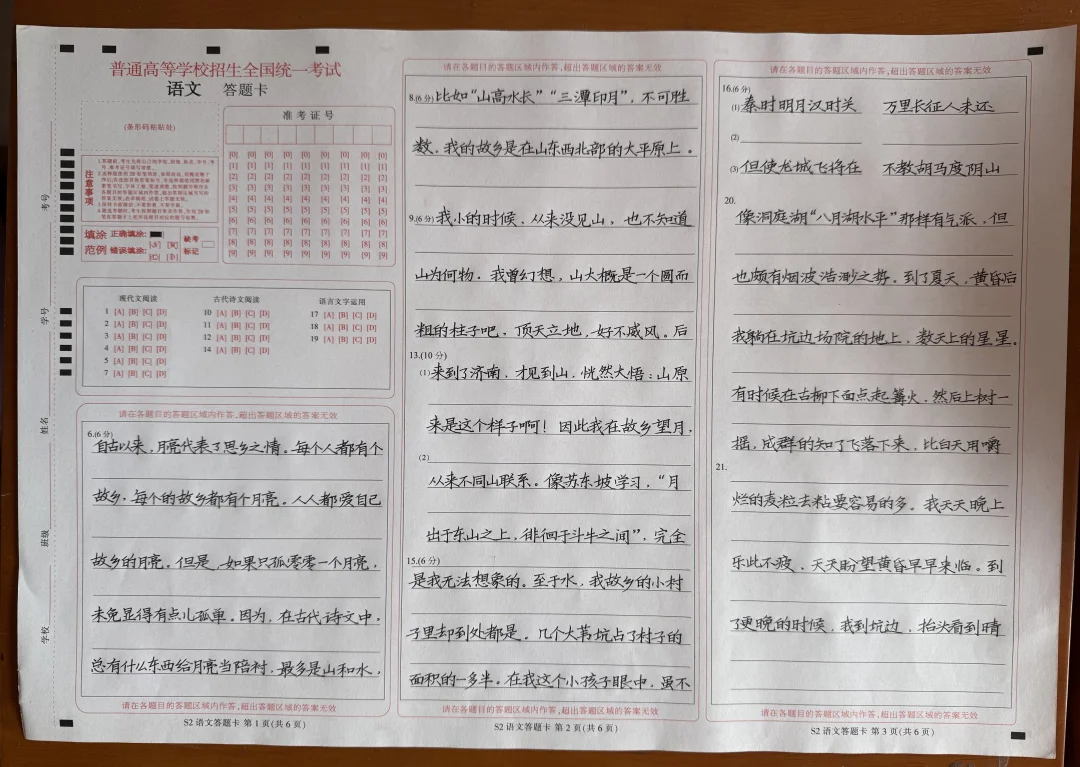 普通高等学校招生全国统一考试
语文 答题卡
(条形码粘贴处)
准考证号
注意事项
[0] [0] [0] [0] [0] [0] [0] [0] [0]
[1] [1] [1] [1] [1] [1] [1] [1] [1]
[2] [2] [2] [2] [2] [2] [2] [2] [2]
[3] [3] [3] [3] [3] [3] [3] [3] [3]
[4] [4] [4] [4] [4] [4] [4] [4] [4]
[5] [5] [5] [5] [5] [5] [5] [5] [5]
[6] [6] [6] [6] [6] [6] [6] [6] [6]
[7] [7] [7] [7] [7] [7] [7] [7] [7]
[8] [8] [8] [8] [8] [8] [8] [8] [8]
[9] [9] [9] [9] [9] [9] [9] [9] [9]
填涂范例
正确填涂:
错误填涂:
缺考标记
考号
学号
姓名
班级
学校
现代文阅读 古代诗文阅读 语言文字运用
1 [A] [B] [C] [D] 10 [A] [B] [C] [D] 17 [A] [B] [C] [D]
2 [A] [B] [C] [D] 11 [A] [B] [C] [D] 18 [A] [B] [C] [D]
3 [A] [B] [C] [D] 12 [A] [B] [C] [D] 19 [A] [B] [C] [D]
4 [A] [B] [C] [D] 14 [A] [B] [C] [D]
5 [A] [B] [C] [D]
7 [A] [B] [C] [D]
请在各题目的答题区域内作答,超出答题区域的答案无效
6.(6分)
自古以来,月亮代表了思乡之情。每个人都有个
故乡,每个的故乡都有个月亮。人人都爱自己
故乡的月亮。但是,如果只孤零零一个月亮,
未免显得有点儿孤单。因为,在古代诗文中,
总有什么东西给月亮当陪衬,最多是山和水,
请在各题目的答题区域内作答,超出答题区域的答案无效
S2 语文答题卡 第 1 页(共 6 页)
请在各题目的答题区域内作答,超出答题区域的答案无效
8.(6分) 比如“山高水长”“三潭印月”,不可胜
数。我的故乡是在山东西北部的大平原上。
9.(6分) 我小的时候,从来没见山,也不知道
山为何物。我曾幻想,山大概是一个圆而
粗的柱子吧,顶天立地,好不威风。后
13.(10分)
(1) 来到了济南,才见到山,恍然大悟:山原
来是这个样子啊!因此我在故乡望月,
(2)
从来不同山联系。像苏东坡学习,“月
出于东山之上,徘徊于斗牛之间”,完全
15.(6分)
是我无法想象的。至于水,我故乡的小村
子里却到处都是。几个大苇坑占了村子的
面积的一多半。在我这个小孩子眼中,虽不
请在各题目的答题区域内作答,超出答题区域的答案无效
S2 语文答题卡 第 2 页(共 6 页)
请在各题目的答题区域内作答,超出答题区域的答案无效
16.(6分)
(1) 秦时明月汉时关 万里长征人未还
(2)
(3) 但使龙城飞将在 不教胡马度阴山
20.
像洞庭湖“八月湖水平”那样有气派,但
也颇有烟波浩渺之势。到了夏天,黄昏后
我躺在坑边场院的地上,数天上的星星。
有时候在古柳下面点起篝火,然后上树一
摇,成群的知了飞落下来,比白天用嚼
21.
烂的麦粒去粘要容易的多。我天天晚上
乐此不疲,天天盼望黄昏早早来临。到
了更晚的时候,我到坑边,抬头看到晴
请在各题目的答题区域内作答,超出答题区域的答案无效
S2 语文答题卡 第 3 页(共 6 页)